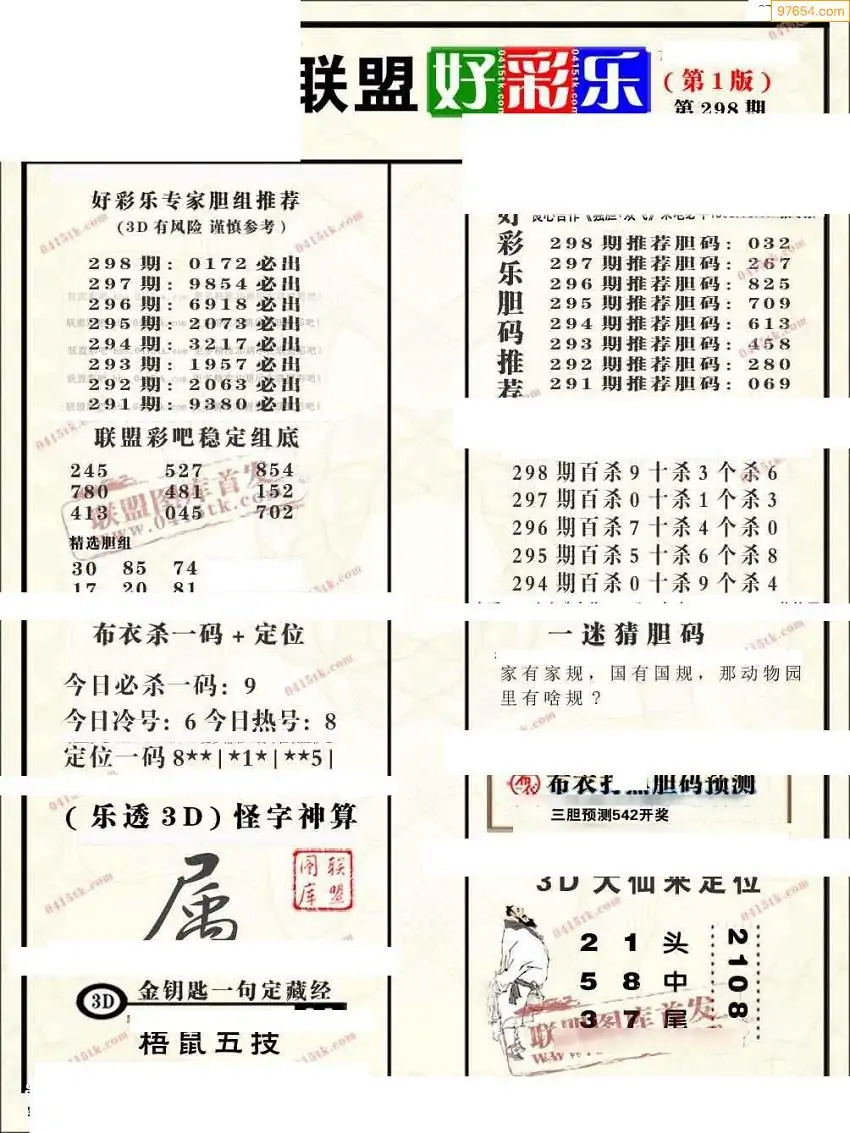 97654.com
联盟好彩乐
(第1版)
第298期
好彩乐专家胆组推荐
(3D有风险 谨慎参考)
298期: 0172必出
297期: 9854必出
296期: 6918必出
295期: 2073必出
294期: 3217必出
293期: 1957必出
292期: 2063必出
291期: 9380必出
联盟彩吧稳定组底
245 527 854
780 481 152
413 045 702
精选胆组
30 85 74
17 20 81
布衣杀一码+定位
今日必杀一码: 9
今日冷号: 6 今日热号: 8
定位一码8**|*1*|**5|
(乐透3D)怪字神算
属
联盟图库
3D 金钥匙一句定藏经
梧鼠五技
好彩乐胆码推荐
298期推荐胆码: 032
297期推荐胆码: 267
296期推荐胆码: 825
295期推荐胆码: 709
294期推荐胆码: 613
293期推荐胆码: 458
292期推荐胆码: 280
291期推荐胆码: 069
298期百杀9十杀3个杀6
297期百杀0十杀1个杀3
296期百杀7十杀4个杀0
295期百杀5十杀6个杀8
294期百杀0十杀9个杀4
一迷猜胆码
家有家规，国有国规，那动物园
里有啥规?
胆码预测
三胆预测542开奖
3D大仙来定位
2 1 头
5 8 中
3 7 尾
2108
联盟图库首发
www.0415tk.com
0415tk.com